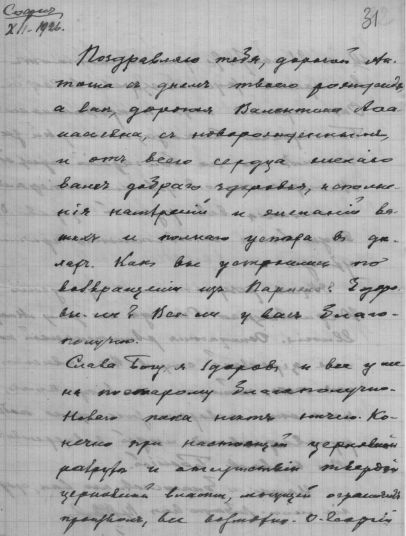 София,
XII. 1926.
31
Поздравляю тебя, дорогой Ан-
тоша съ днемъ твоего рожденія,
а вас, дорогая Валентина Афа-
насьевна, съ новорожденнымъ,
и отъ всего сердца желаю
вамъ добраго здоровья, исполне-
нія намѣреній и желаній ва-
шихъ и полнаго успѣха въ дѣ-
лахъ. Какъ вы устроились по
возвращеніи изъ Парижа? Здоро-
вы-ли? Все ли у васъ благо-
получно.
Слава Богу я здоровъ и все у меня
по старому благополучно.
Новаго пока нѣтъ ничего. Ко-
нечно при настоящей церковной
разрухѣ и отсутствіи твердой
церковной власти, могущей ограничить
произволъ, все возможно. О. Георгій